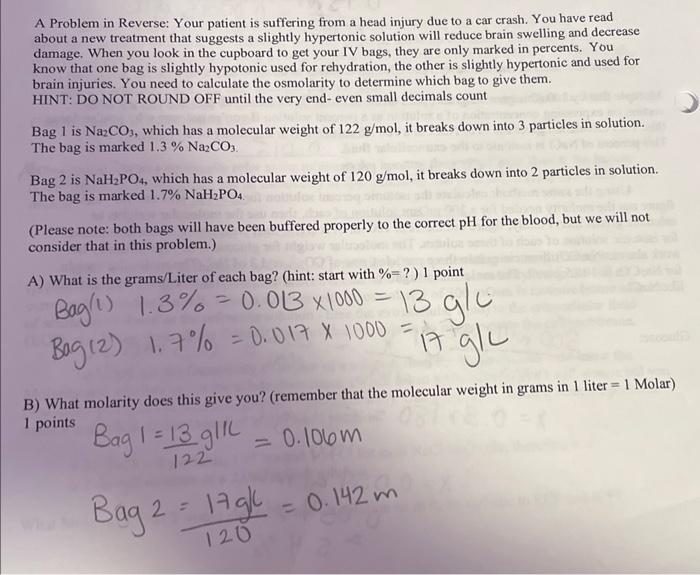 A Problem in Reverse: Your patient is suffering from a head injury due to a car crash. You have read
about a new treatment that suggests a slightly hypertonic solution will reduce brain swelling and decrease
damage. When you look in the cupboard to get your IV bags, they are only marked in percents. You
know that one bag is slightly hypotonic used for rehydration, the other is slightly hypertonic and used for
brain injuries. You need to calculate the osmolarity to determine which bag to give them.
HINT: DO NOT ROUND OFF until the very end- even small decimals count
Bag 1 is Na₂CO₃, which has a molecular weight of 122 g/mol, it breaks down into 3 particles in solution.
The bag is marked 1.3 % Na₂CO₃.
Bag 2 is NaH₂PO₄, which has a molecular weight of 120 g/mol, it breaks down into 2 particles in solution.
The bag is marked 1.7% NaH₂PO₄.
(Please note: both bags will have been buffered properly to the correct pH for the blood, but we will not
consider that in this problem.)
A) What is the grams/Liter of each bag? (hint: start with %= ? ) 1 point
Bag(1) 1.3% = 0.013 x1000 = 13 g/L
Bag(2) 1.7% = 0.017 x 1000 = 17 g/L
B) What molarity does this give you? (remember that the molecular weight in grams in 1 liter = 1 Molar)
1 points
Bag 1 = 13 g/L = 0.106m
122
Bag 2 = 17g/L = 0.142m
120